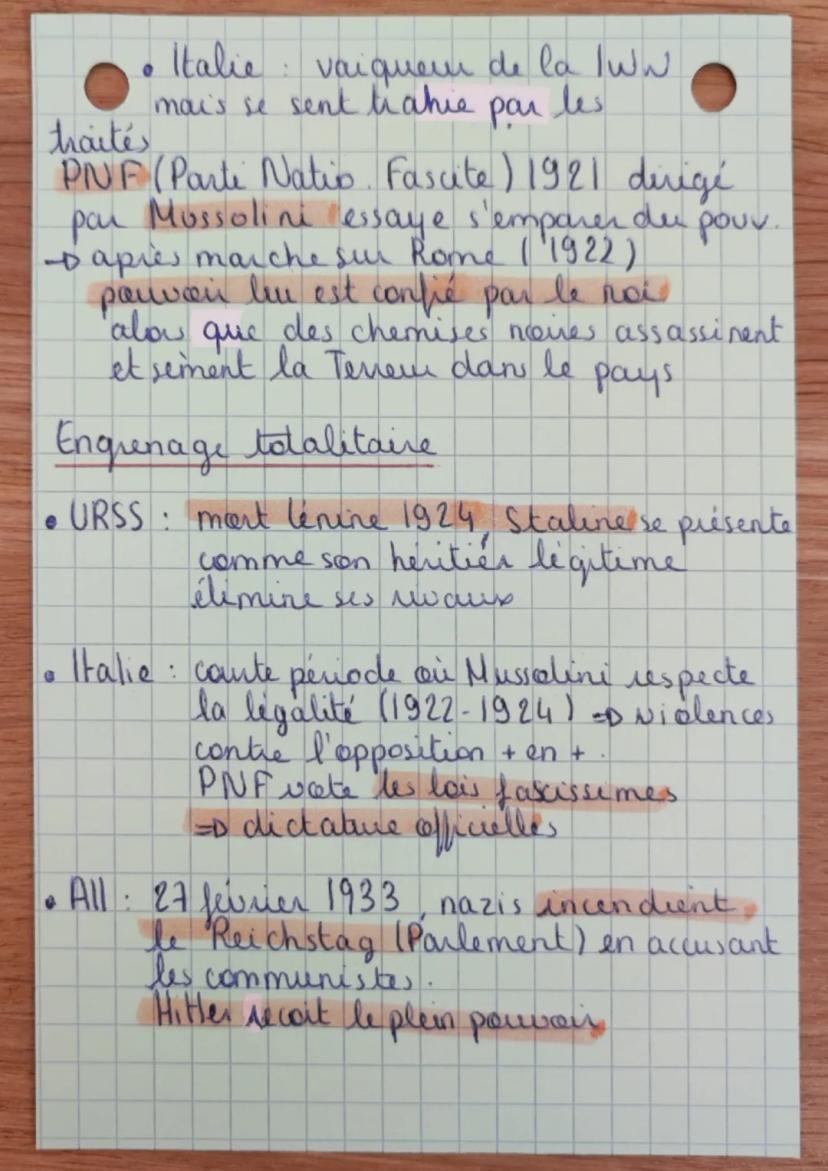 • Italie : vaiqueur de la IWW
mais se sent trahie par les
traités
PNF (Parti Natio. Fascite) 1921 dirigé
par Mussolini essaye s'emparer du pouv.
→ après marche sur Rome (1922)
pouvoir lui est confié par le roi
alors que des chemises noires assassinent
et sèment la Terreur dans le pays
Engrenage totalitaire
• URSS : mort Lénine 1924, Staline se présente
comme son héritier légitime
élimine ses rivaux
• Italie : courte période où Mussolini respecte
la légalité (1922-1924) => violences
contre l'opposition + en + .
PNF vote les lois fascissimes
=> dictature officielles
• All : 27 février 1933, nazis incendient
le Reichstag (Parlement) en accusant
les communistes.
Hitler recoit le plein pouvoir